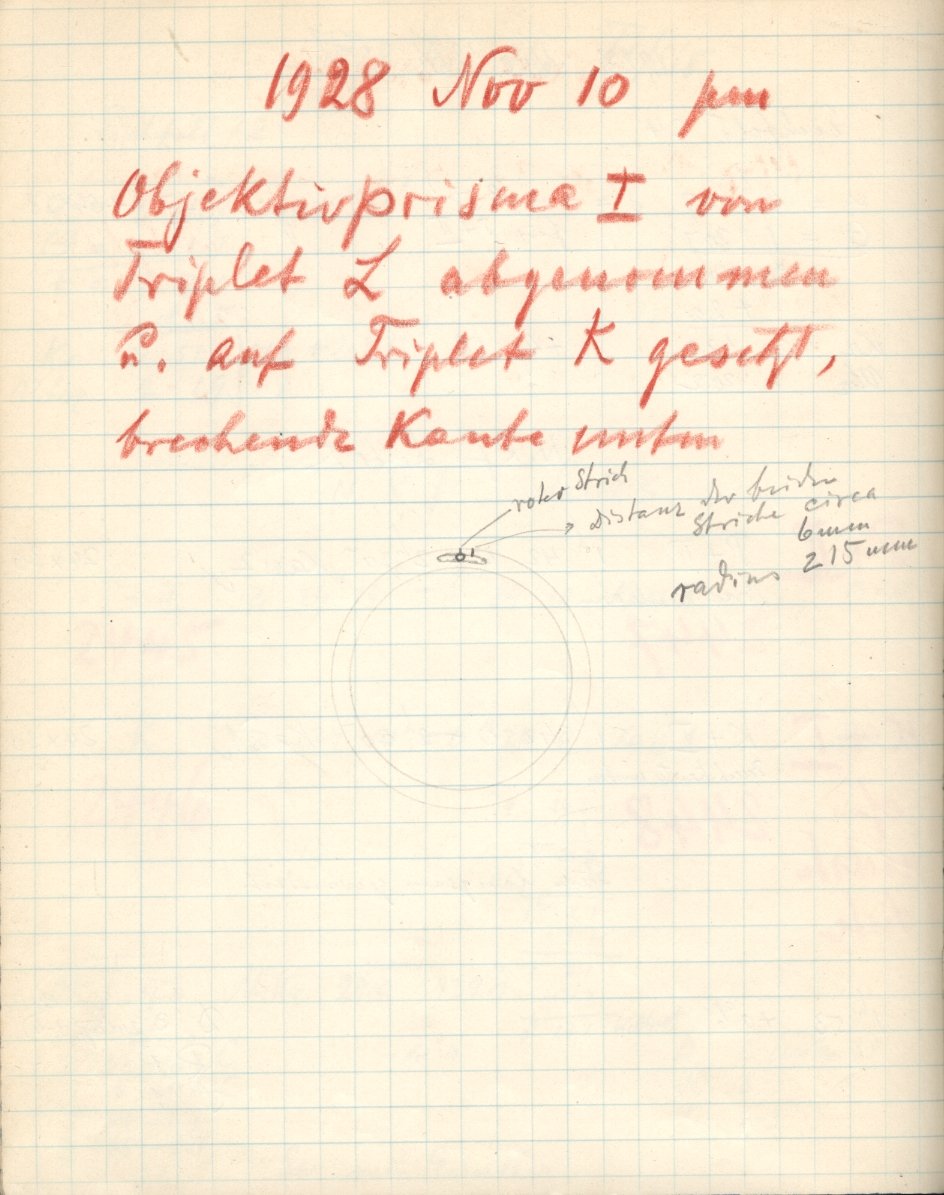 1928 Nov 10 pm
Objektivprisma I von
Triplet L abgenommen
u. auf Triplet K gesetzt,
brechende Kante unten
roter Strich
Distanz der beiden
Striche circa
6mm
radius 215 mm